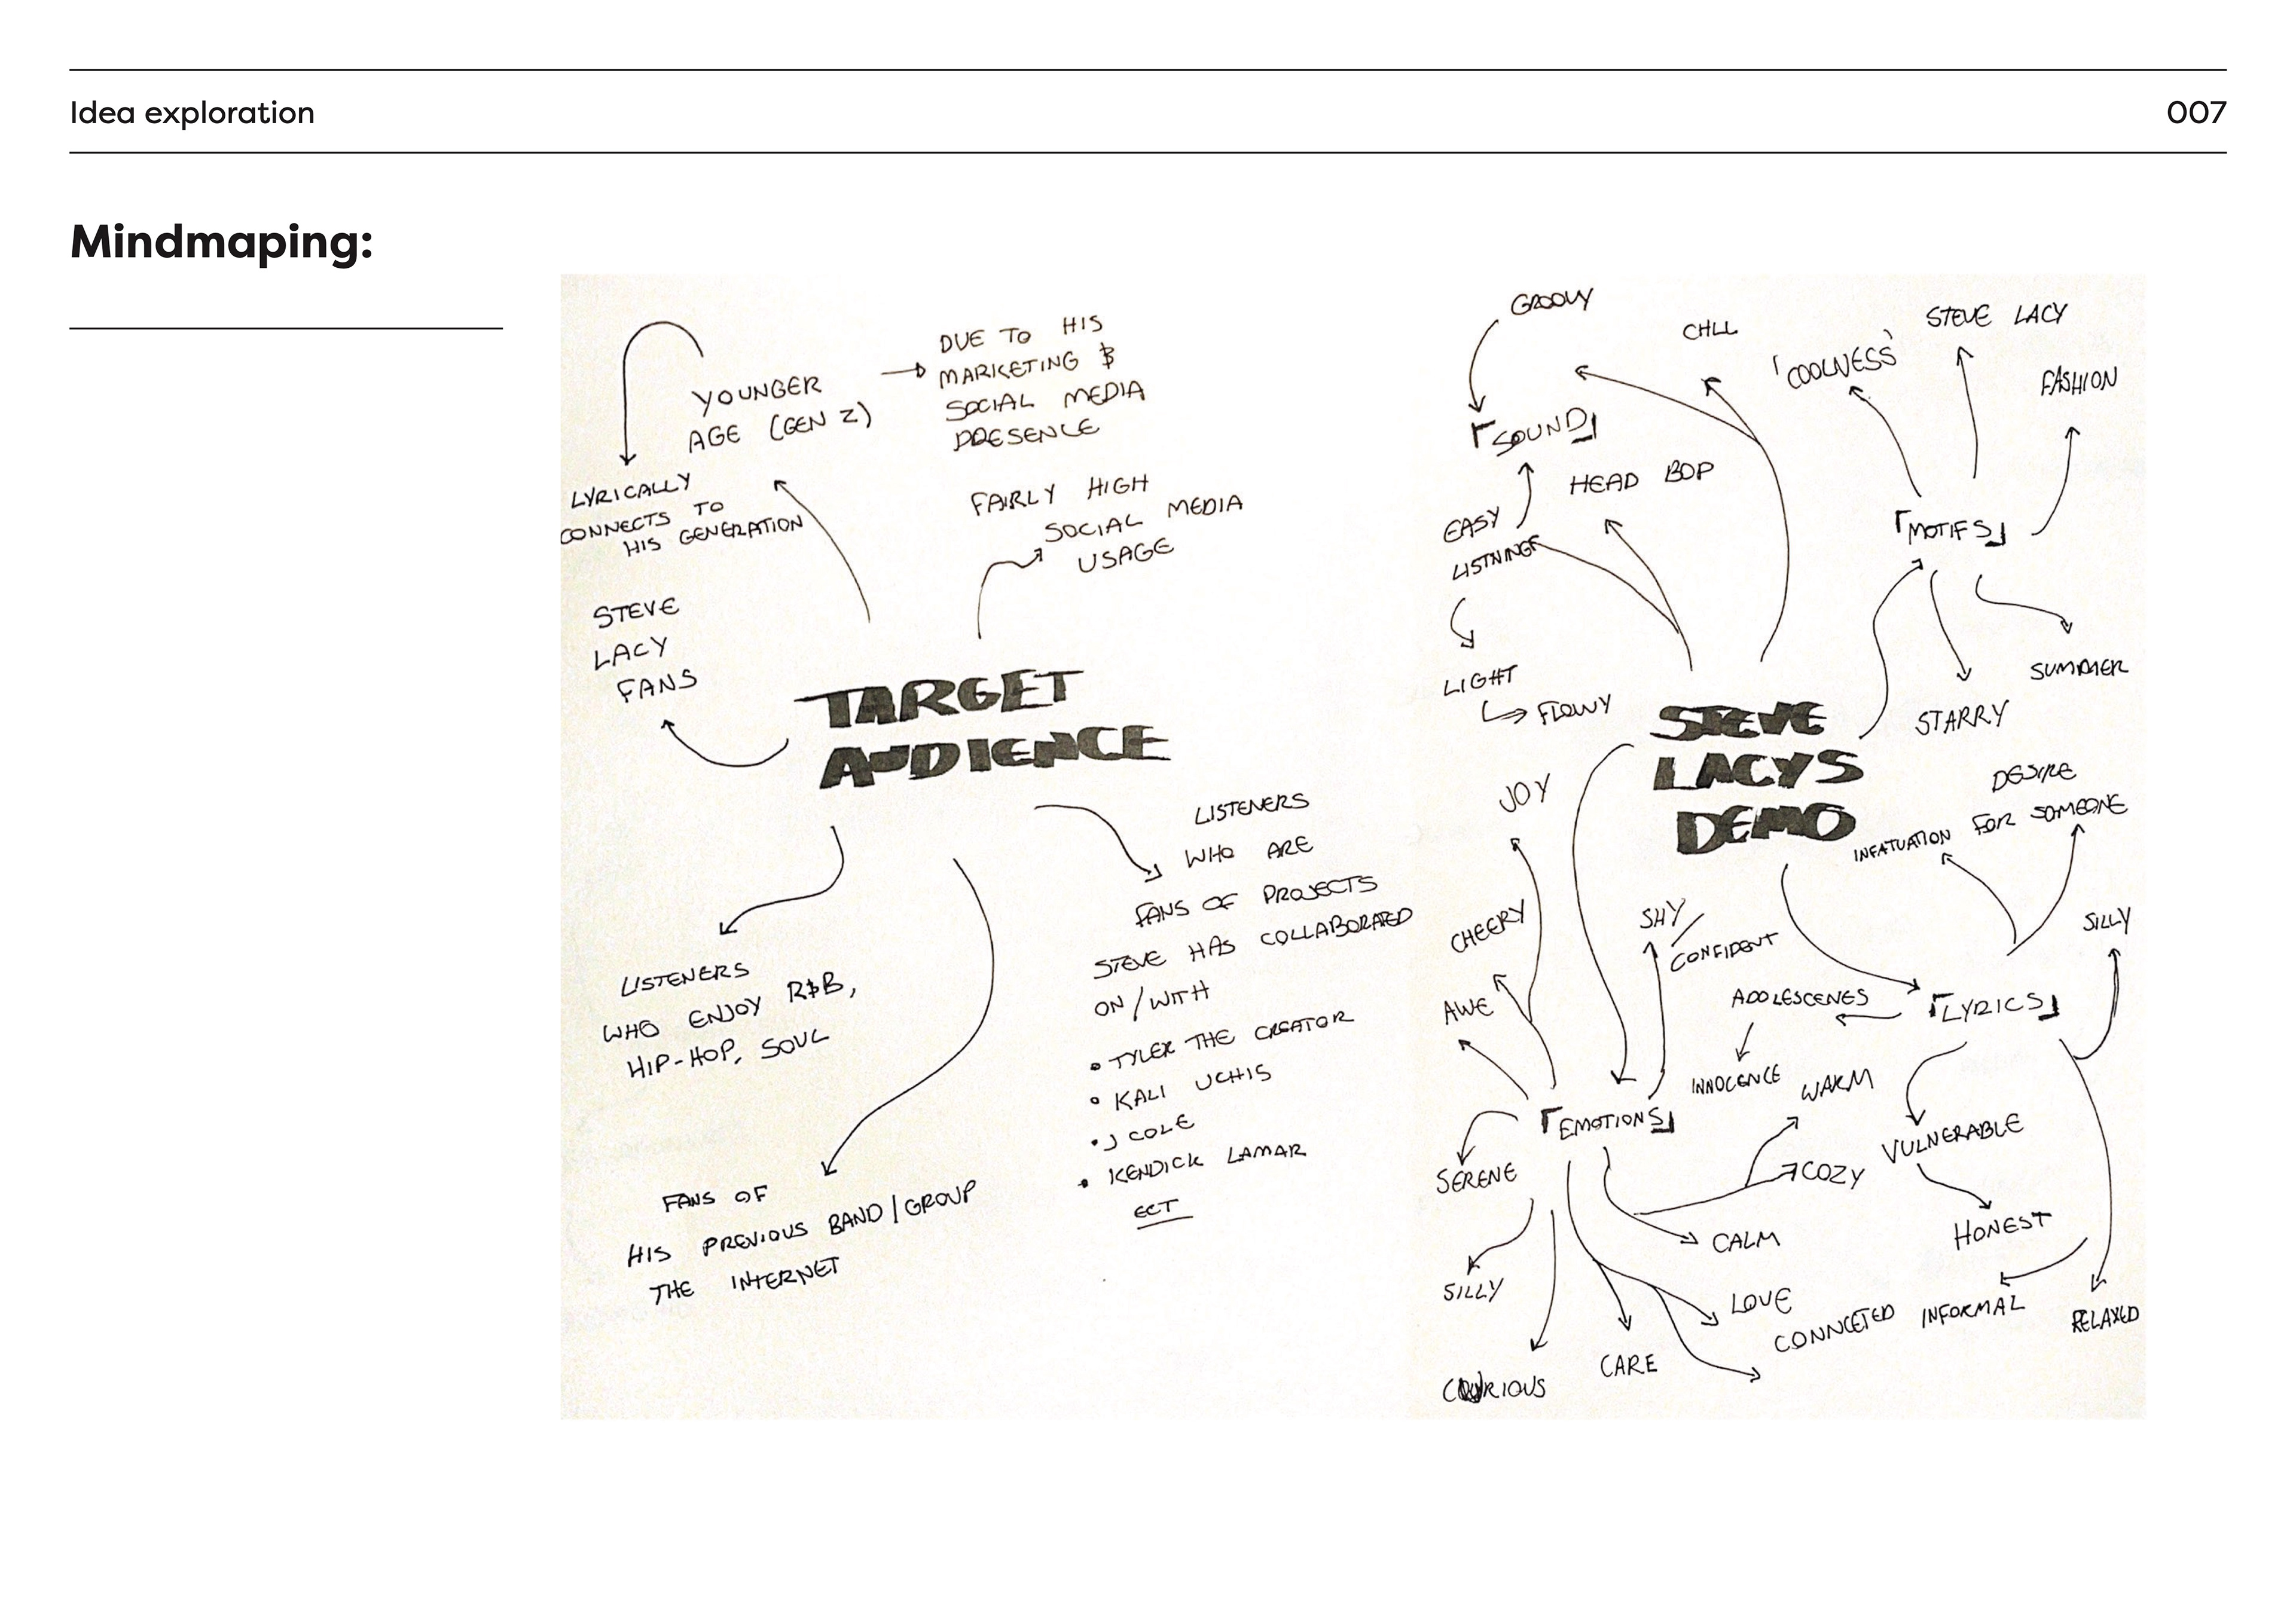 Idea exploration
007
Mindmaping:
YOUNGER
AGE (GEN Z)
DUE TO HIS
MARKETING &
SOCIAL MEDIA
PRESENCE
LYRICALLY
CONNECTS TO
HIS GENERATION
FAIRLY HIGH
SOCIAL MEDIA
USAGE
STEVE
LACY
FANS
TARGET
AUDIENCE
LISTENERS
WHO ENJOY R&B,
HIP-HOP, SOUL
FANS OF
HIS PREVIOUS BAND/GROUP
THE INTERNET
LISTENERS
WHO ARE
FANS OF PROJECTS
STEVE HAS COLLABORATED
ON/WITH
• TYLER THE CREATOR
• KALI UCHIS
• J COLE
• KENDICK LAMAR
ECT
GROOVY
CHLL
「SOUND」
HEAD BOP
EASY
LISTNING
LIGHT
FLOWY
'COOLNESS'
STEVE LACY
FASHION
「MOTIFS」
SUMMER
STARRY
STEVE
LACYS
DEMO
JOY
CHEERY
AWE
SHY/
CONFIDENT
「EMOTIONS」
SERENE
SILLY
CURIOUS
CARE
LOVE
CONNCETED
CALM
COZY
WARM
DESIRE
FOR SOMEONE
INFATUATION
SILLY
「LYRICS」
ADOLESCENES
INNOCENCE
VULNERABLE
HONEST
INFORMAL
RELAXED